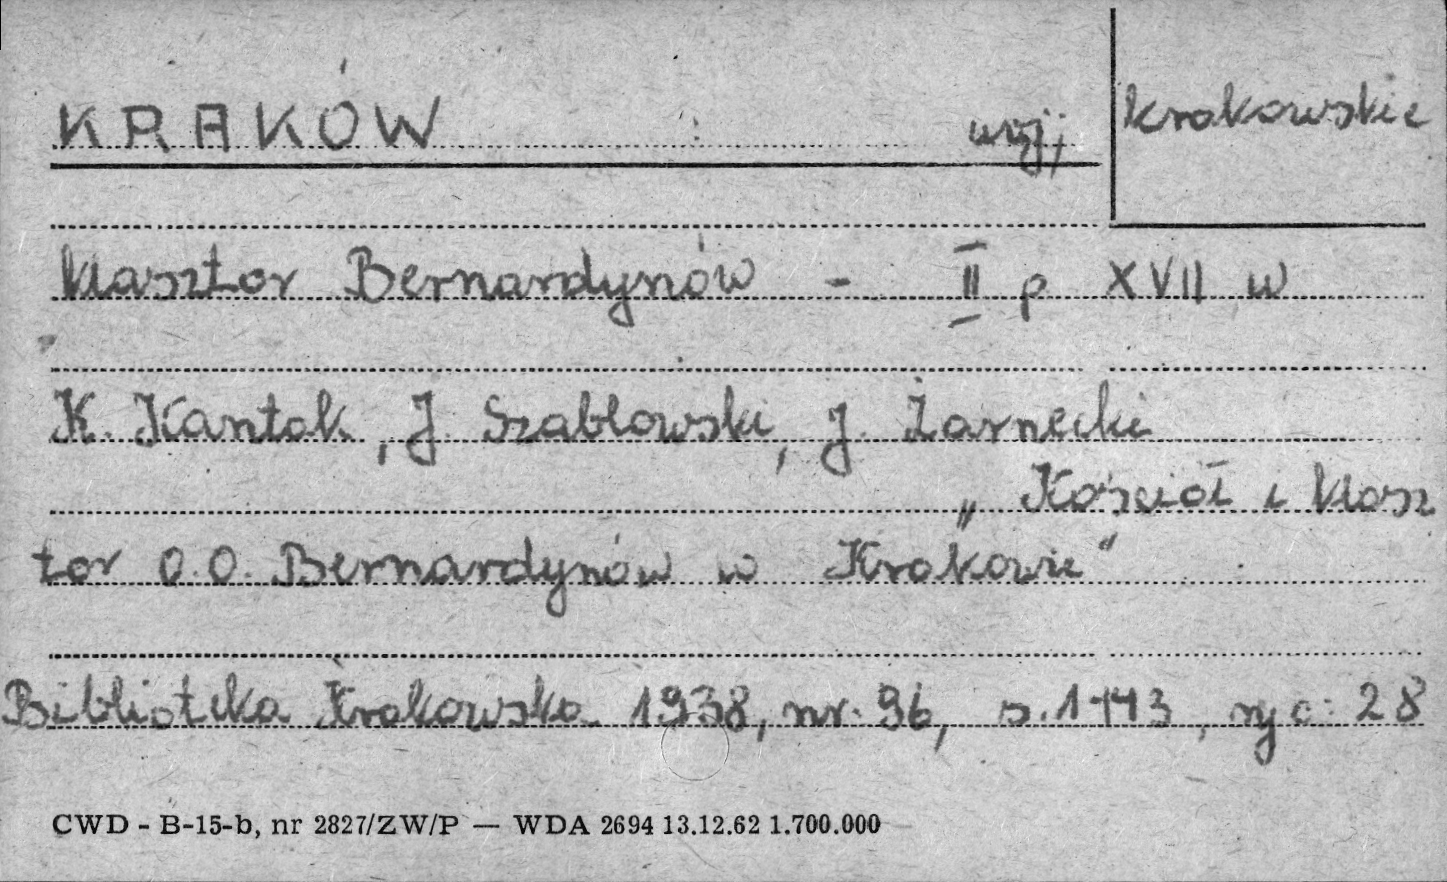 KRAKÓW woj, krakowskie
klasztor Bernardynów - II p XVII w
K. Kantak, J. Szabłowski, J. Żarnecki
„Kościół i klasz
tor O.O. Bernardynów w Krakowie"
Biblioteka Krakowska 1938, nr. 96, s. 1-143, ryc: 28
CWD - B-15-b, nr 2827/ZW/P — WDA 2694 13.12.62 1.700.000